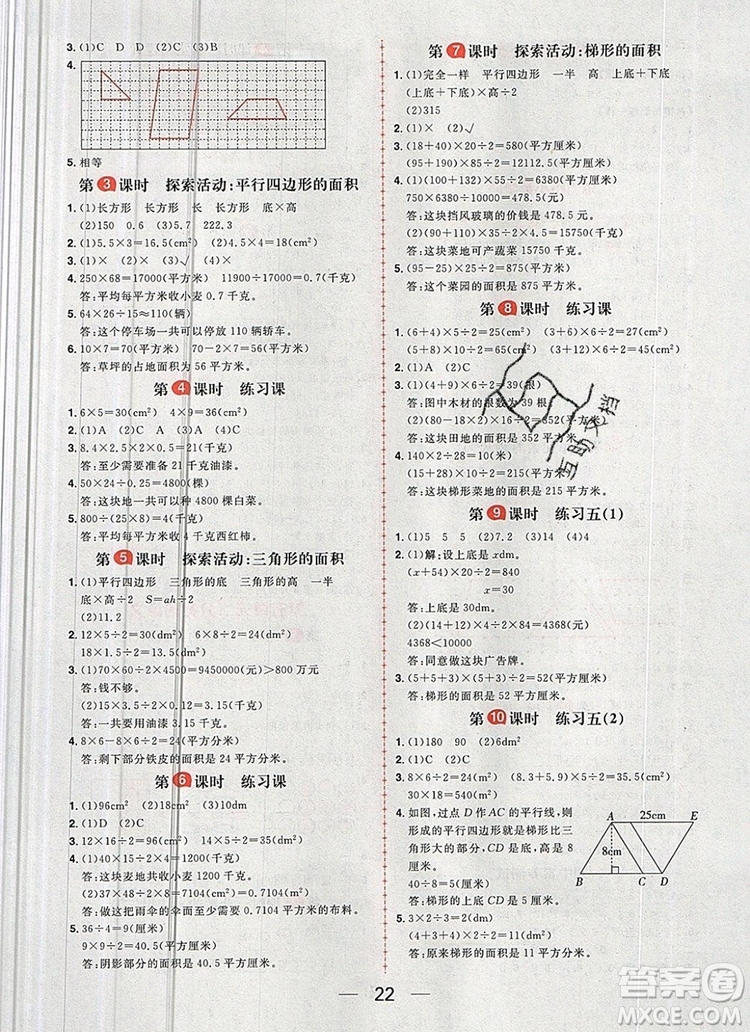 3. (1)C D (2)C (3)B
4.
5. 相等
第3课时 探索活动:平行四边形的面积
1. (1)长方形 长方形 长 长方形 底×高
(2)150 0.6 (3)5.7 222.3
2. (1)5.5×3=16.5(cm²) (2)4.5×4=18(cm²)
3. (1)× (2)× (3)√ (4)×
4. 250×68=17000(平方米) 11900÷17000=0.7(千克)
答:平均每平方米收小麦0.7千克。
5. 64×26÷15≈110(辆)
答:这个停车场一共可以停放110辆轿车。
6. 10×7=70(平方米) 70-2×7=56(平方米)
答:草坪的占地面积为56平方米。
第4课时 练习课
1. 6×5=30(cm²) 4×9=36(cm²)
2. (1)A (2)C (3)A (4)C
3. 8.4×2.5×2×0.5=21(千克)
答:至少需要准备21千克油漆。
4. 50×24÷0.25=4800(棵)
答:这块地一共可以种4800棵白菜。
5. 800÷(25×8)=4(千克)
答:平均每平方米收4千克西红柿。
第5课时 探索活动:三角形的面积
1. (1)平行四边形 三角形的底 三角形的高 一半
底×高÷2 S=ah÷2
(2)11.2
2. 12×5÷2=30(cm²) 6×8÷2=24(cm²)
18×1.5÷2=13.5(cm²)
3. (1)70×60÷2×4500=9450000(元)>800万元
答:钱不够。
(2)15×3.5÷2×0.12=3.15(千克)
答:一共要用油漆3.15千克。
4. 8×6-8×6÷2=24(平方分米)
答:剩下部分铁皮的面积是24平方分米。
第6课时 练习课
1. (1)96cm² (2)18cm² (3)10dm
2. (1)D (2)C
3. 16×12÷2=96(平方米) 14×5÷2=35(cm²)
4. (1)40×30÷2×2=1200(千克)
答:这块麦地共收小麦1200千克。
(2)37×48÷2×8=7104(平方厘米)=0.7104(平方米)
答:做这把雨伞的伞面至少需要0.7104平方米的布料。
5. 36÷4=9(厘米)
9×9÷2=40.5(平方厘米)
答:阴影部分的面积是40.5平方厘米。
第7课时 探索活动:梯形的面积
1. (1)完全一样 平行四边形 一半 高 上底+下底
(上底+下底)×高÷2
(2)315
2. (1)× (2)√
3. (18+40)×20÷2=580(平方厘米)
(95+190)×85÷2=12112.5(平方厘米)
4. (1)(100+120)×58÷2=6380(平方厘米)
750×6380÷10000=478.5(元)
答:这块挡风玻璃的价钱是478.5元。
(2)(90+110)×35÷2×4.5=15750(千克)
答:这块菜地可产蔬菜15750千克。
5. (95-25)×25÷2=875(平方米)
答:这个菜园的面积是875平方米。
第8课时 练习课
1. (6+4)×5÷2=25(cm²) (3+6)×6÷2=27(cm²)
(5+8)×10÷2=65(cm²) (3+12)×6÷2=45(cm²)
2. (1)A (2)C
3. (1)(4+9)×6÷2=39(根)
答:图中木材的根数为39根。
(2)(80-18-2×2)×(18-2)÷2=352(平方米)
答:这块田地的面积是352平方米。
4. 140×2÷28=10(米)
(15+28)×10÷2=215(平方米)
答:这块梯形菜地的面积是215平方米。
第9课时 练习五(1)
1. (1)5 5 5 (2)7.2 (3)14 (4)28
2. (1)解:设上底是xdm。
(x+54)×20÷2=840
x=30
答:上底是30dm。
(2)(14+12)×4×2×7×3=4368(元)
4368<10000
答:同意做这块广告牌。
3. (5+5+3)×(5+3)÷2=52(平方厘米)
答:梯形的面积是52平方厘米。
第10课时 练习五(2)
1. (1)180 90 (2)6dm²
2. (1)C (2)C
3. 8×6÷2=24(dm²) (2+4)×5÷2=15(dm²)
30×18=540(dm²)
4. 如图,过点D作AC的平行线,则
形成的平行四边形就是梯形比三
角形大的部分,CD是底,高是8
厘米。
40÷8=5(厘米)
答:梯形的上底CD是5厘米。
A 25cm E
8cm
B C D
5. 3×2÷2=3(dm)
(2+3+4)×3÷2=13.5(dm²)
答:原来梯形的面积是13.5dm²。
互助文档
22
答案圈
MXQE.COM